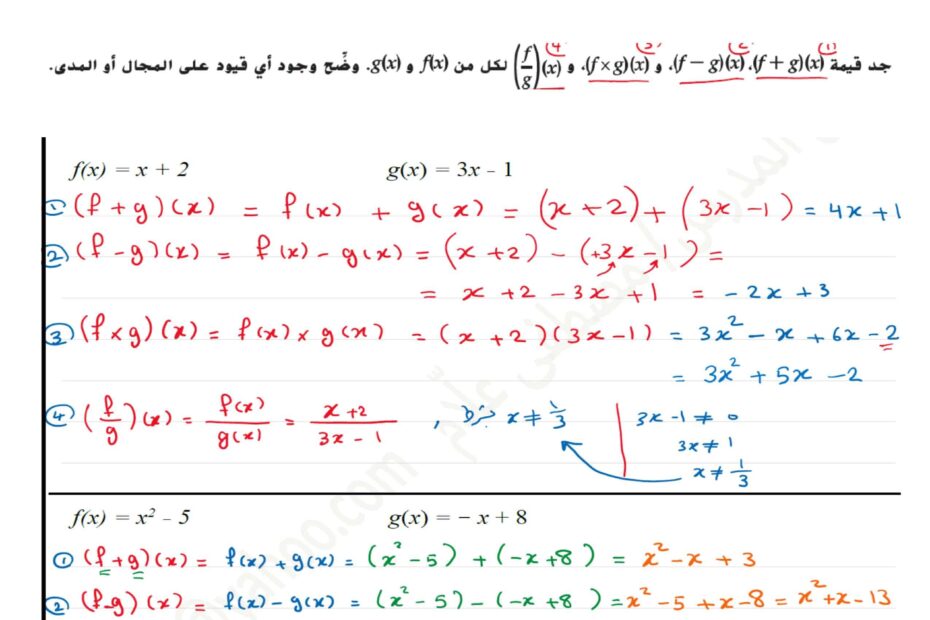 (1) (2) (3) (4)
جد قيمة (f + g)(x)، (f − g)(x)، و (f × g)(x)، و (f/g)(x) لكل من f(x) و g(x). وضِّح وجود أي قيود على المجال أو المدى.
f(x) = x + 2 g(x) = 3x - 1
① (f + g)(x) = f(x) + g(x) = (x + 2) + (3x − 1) = 4x + 1
② (f − g)(x) = f(x) − g(x) = (x + 2) − (+3x − 1) =
= x + 2 − 3x + 1 = −2x + 3
③ (f × g)(x) = f(x) × g(x) = (x + 2)(3x − 1) = 3x² − x + 6x − 2
= 3x² + 5x − 2
④ (f/g)(x) = f(x)/g(x) = (x + 2)/(3x − 1) , بشرط x ≠ 1/3
3x − 1 ≠ 0
3x ≠ 1
x ≠ 1/3
f(x) = x² - 5 g(x) = − x + 8
① (f + g)(x) = f(x) + g(x) = (x² − 5) + (−x + 8) = x² − x + 3
② (f − g)(x) = f(x) − g(x) = (x² − 5) − (−x + 8) = x² − 5 + x − 8 = x² + x − 13